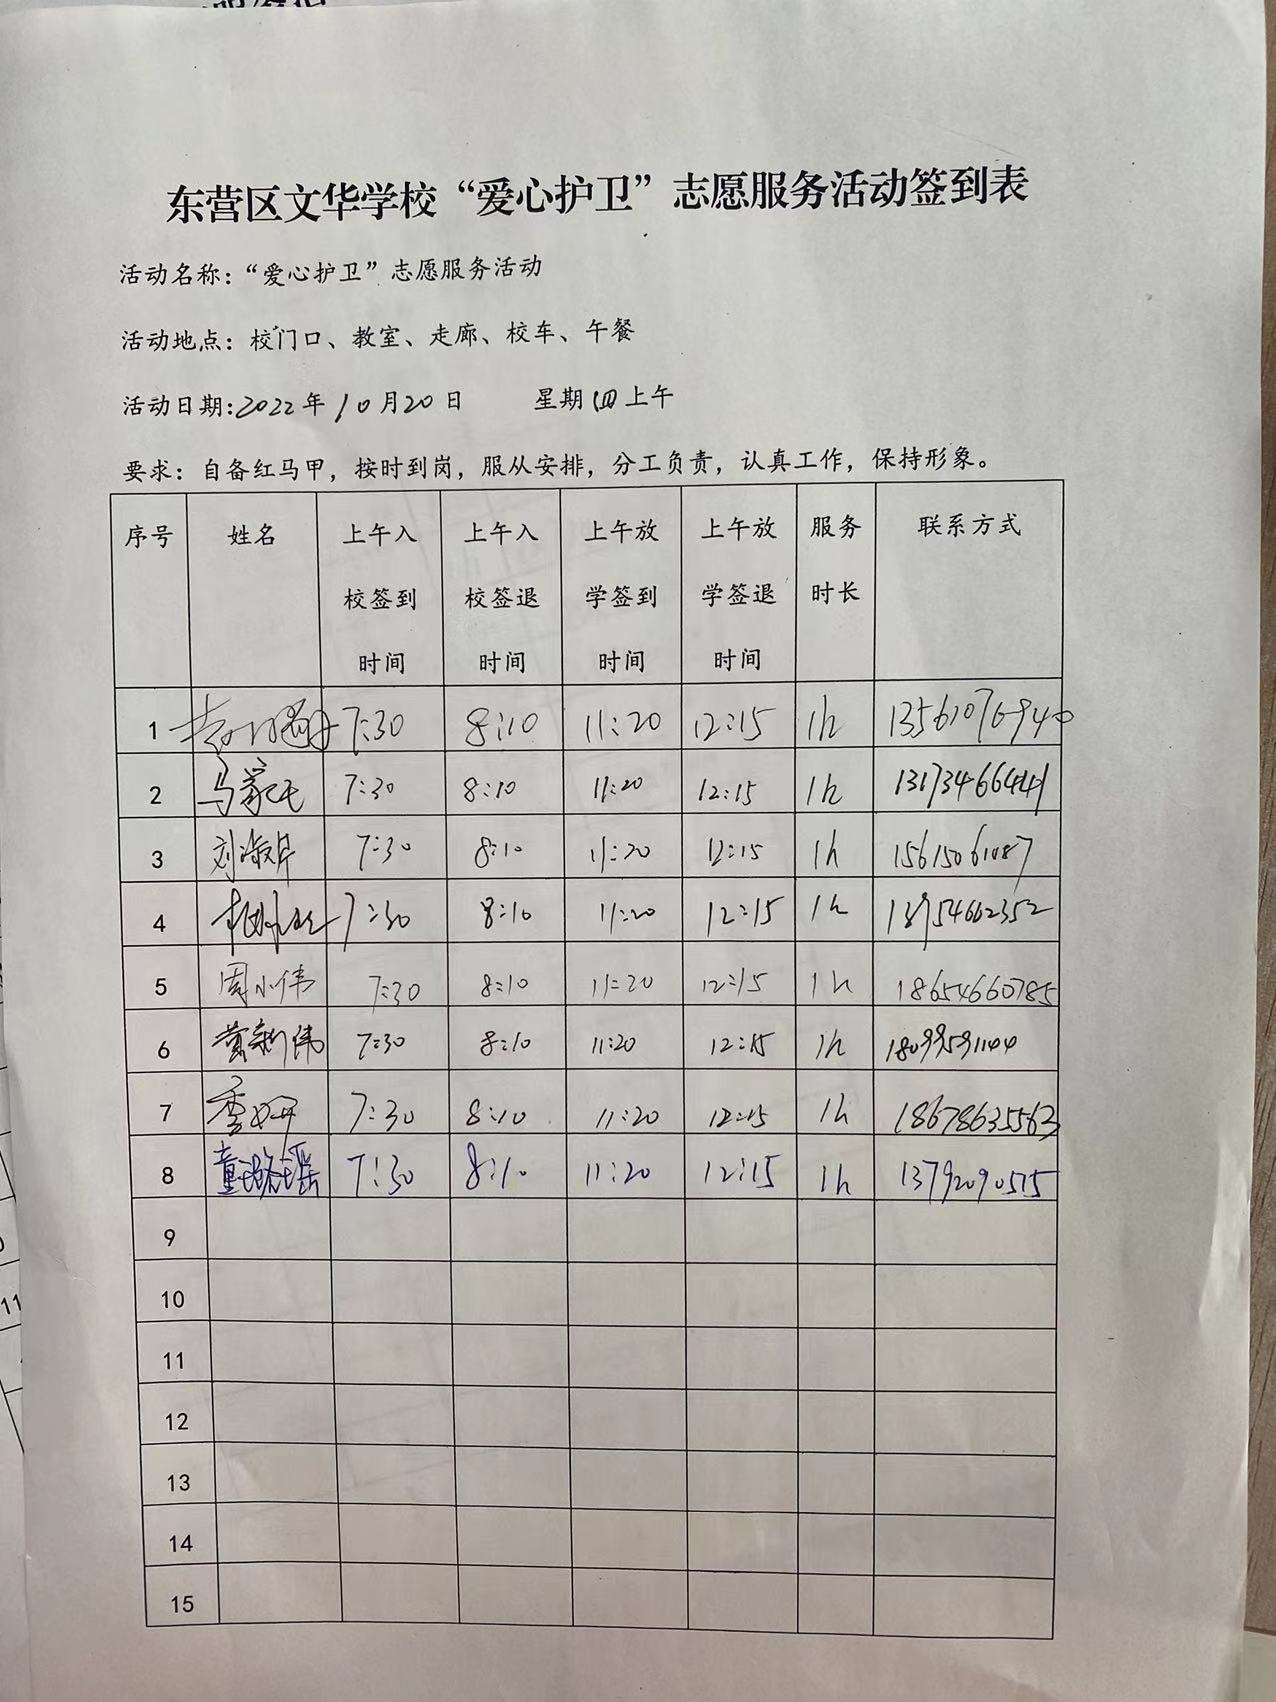 东营区文华学校“爱心护卫”志愿服务活动签到表
活动名称：“爱心护卫”志愿服务活动
活动地点：校门口、教室、走廊、校车、午餐
活动日期:2022年10月20日 星期四上午
要求：自备红马甲，按时到岗，服从安排，分工负责，认真工作，保持形象。
序号 姓名 上午入校签到时间 上午入校签退时间 上午放学签到时间 上午放学签退时间 服务时长 联系方式
1 7:30 8:10 11:20 12:15 1h 13561076940
2 7:30 8:10 11:20 12:15 1h 13173466441
3 7:30 8:10 11:20 12:15 1h 15615061087
4 7:30 8:10 11:20 12:15 1h 13954662352
5 周小伟 7:30 8:10 11:20 12:15 1h 18654660785
6 黄新伟 7:30 8:10 11:20 12:15 1h
7 7:30 8:10 11:20 12:15 1h 18678635563
8 童璐瑶 7:30 8:10 11:20 12:15 1h 13792090515
9
10
11
12
13
14
15